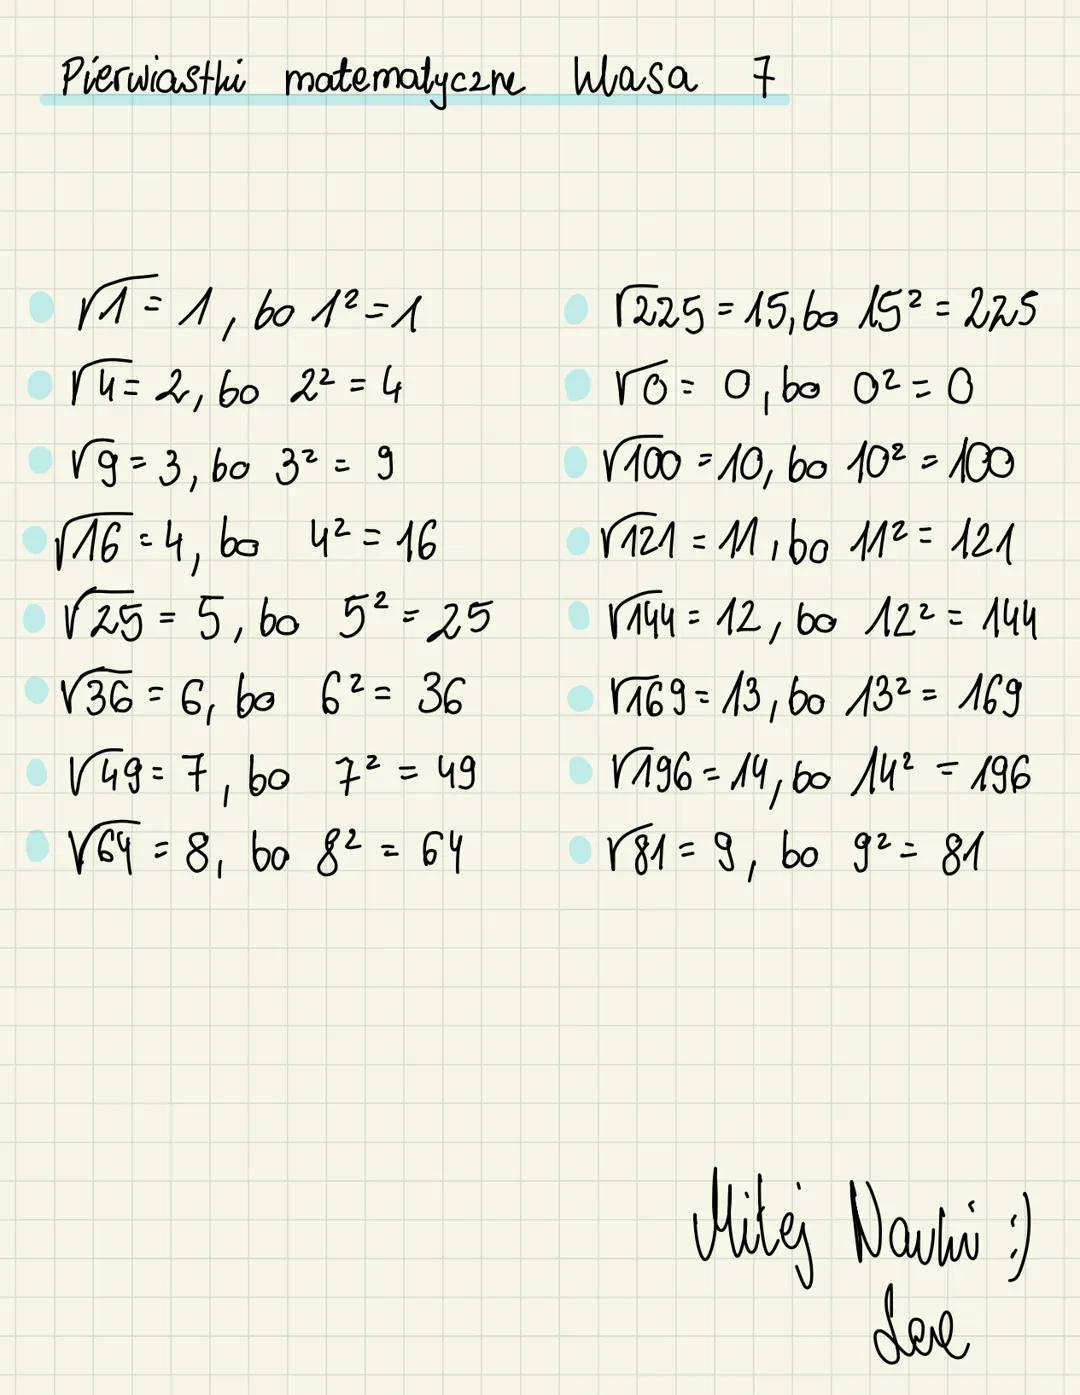 Pierwiastki matematyczne klasa 7
√1 = 1, bo 1² = 1
√4 = 2, bo 2² = 4
√9 = 3, bo 3² = 9
√16 = 4, bo 4² = 16
√25 = 5, bo 5² = 25
√36 = 6, bo 6² = 36
√49 = 7, bo 7² = 49
√64 = 8, bo 8² = 64
√225 = 15, bo 15² = 225
√0 = 0, bo 0² = 0
√100 = 10, bo 10² = 100
√121 = 11, bo 11² = 121
√144 = 12, bo 12² = 144
√169 = 13, bo 13² = 169
√196 = 14, bo 14² = 196
√81 = 9, bo 9² = 81
Miłej Nauki :)